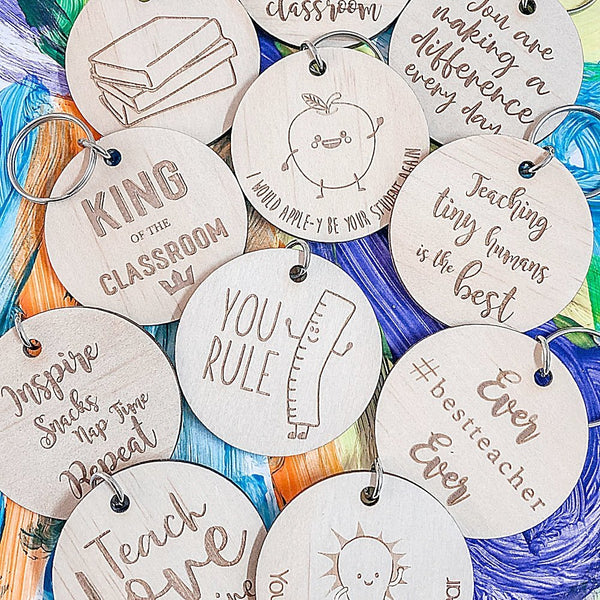 classroom
You are
making a
difference
every day
I WOULD APPLE-Y BE YOUR STUDENT AGAIN
KING
OF THE
CLASSROOM
Teaching
tiny humans
is the best
YOU
RULE
Inspire
Snacks
Nap Time
Repeat
Ever
#bestteacher
Ever
Teach
Love
You